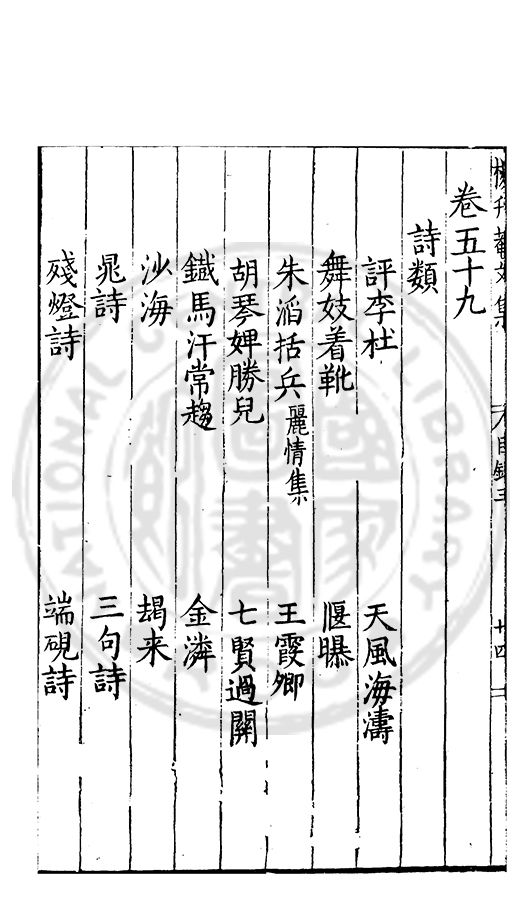 卷五十九
詩類
評李杜　天風海濤
舞妓着靴　偃曝
朱滔括兵麗情集　王霞卿
胡琴婢勝兒　七賢過關
鐵馬汗常趨　金潾
沙海　朅来
晁詩　三句詩
殘燈詩　端硯詩